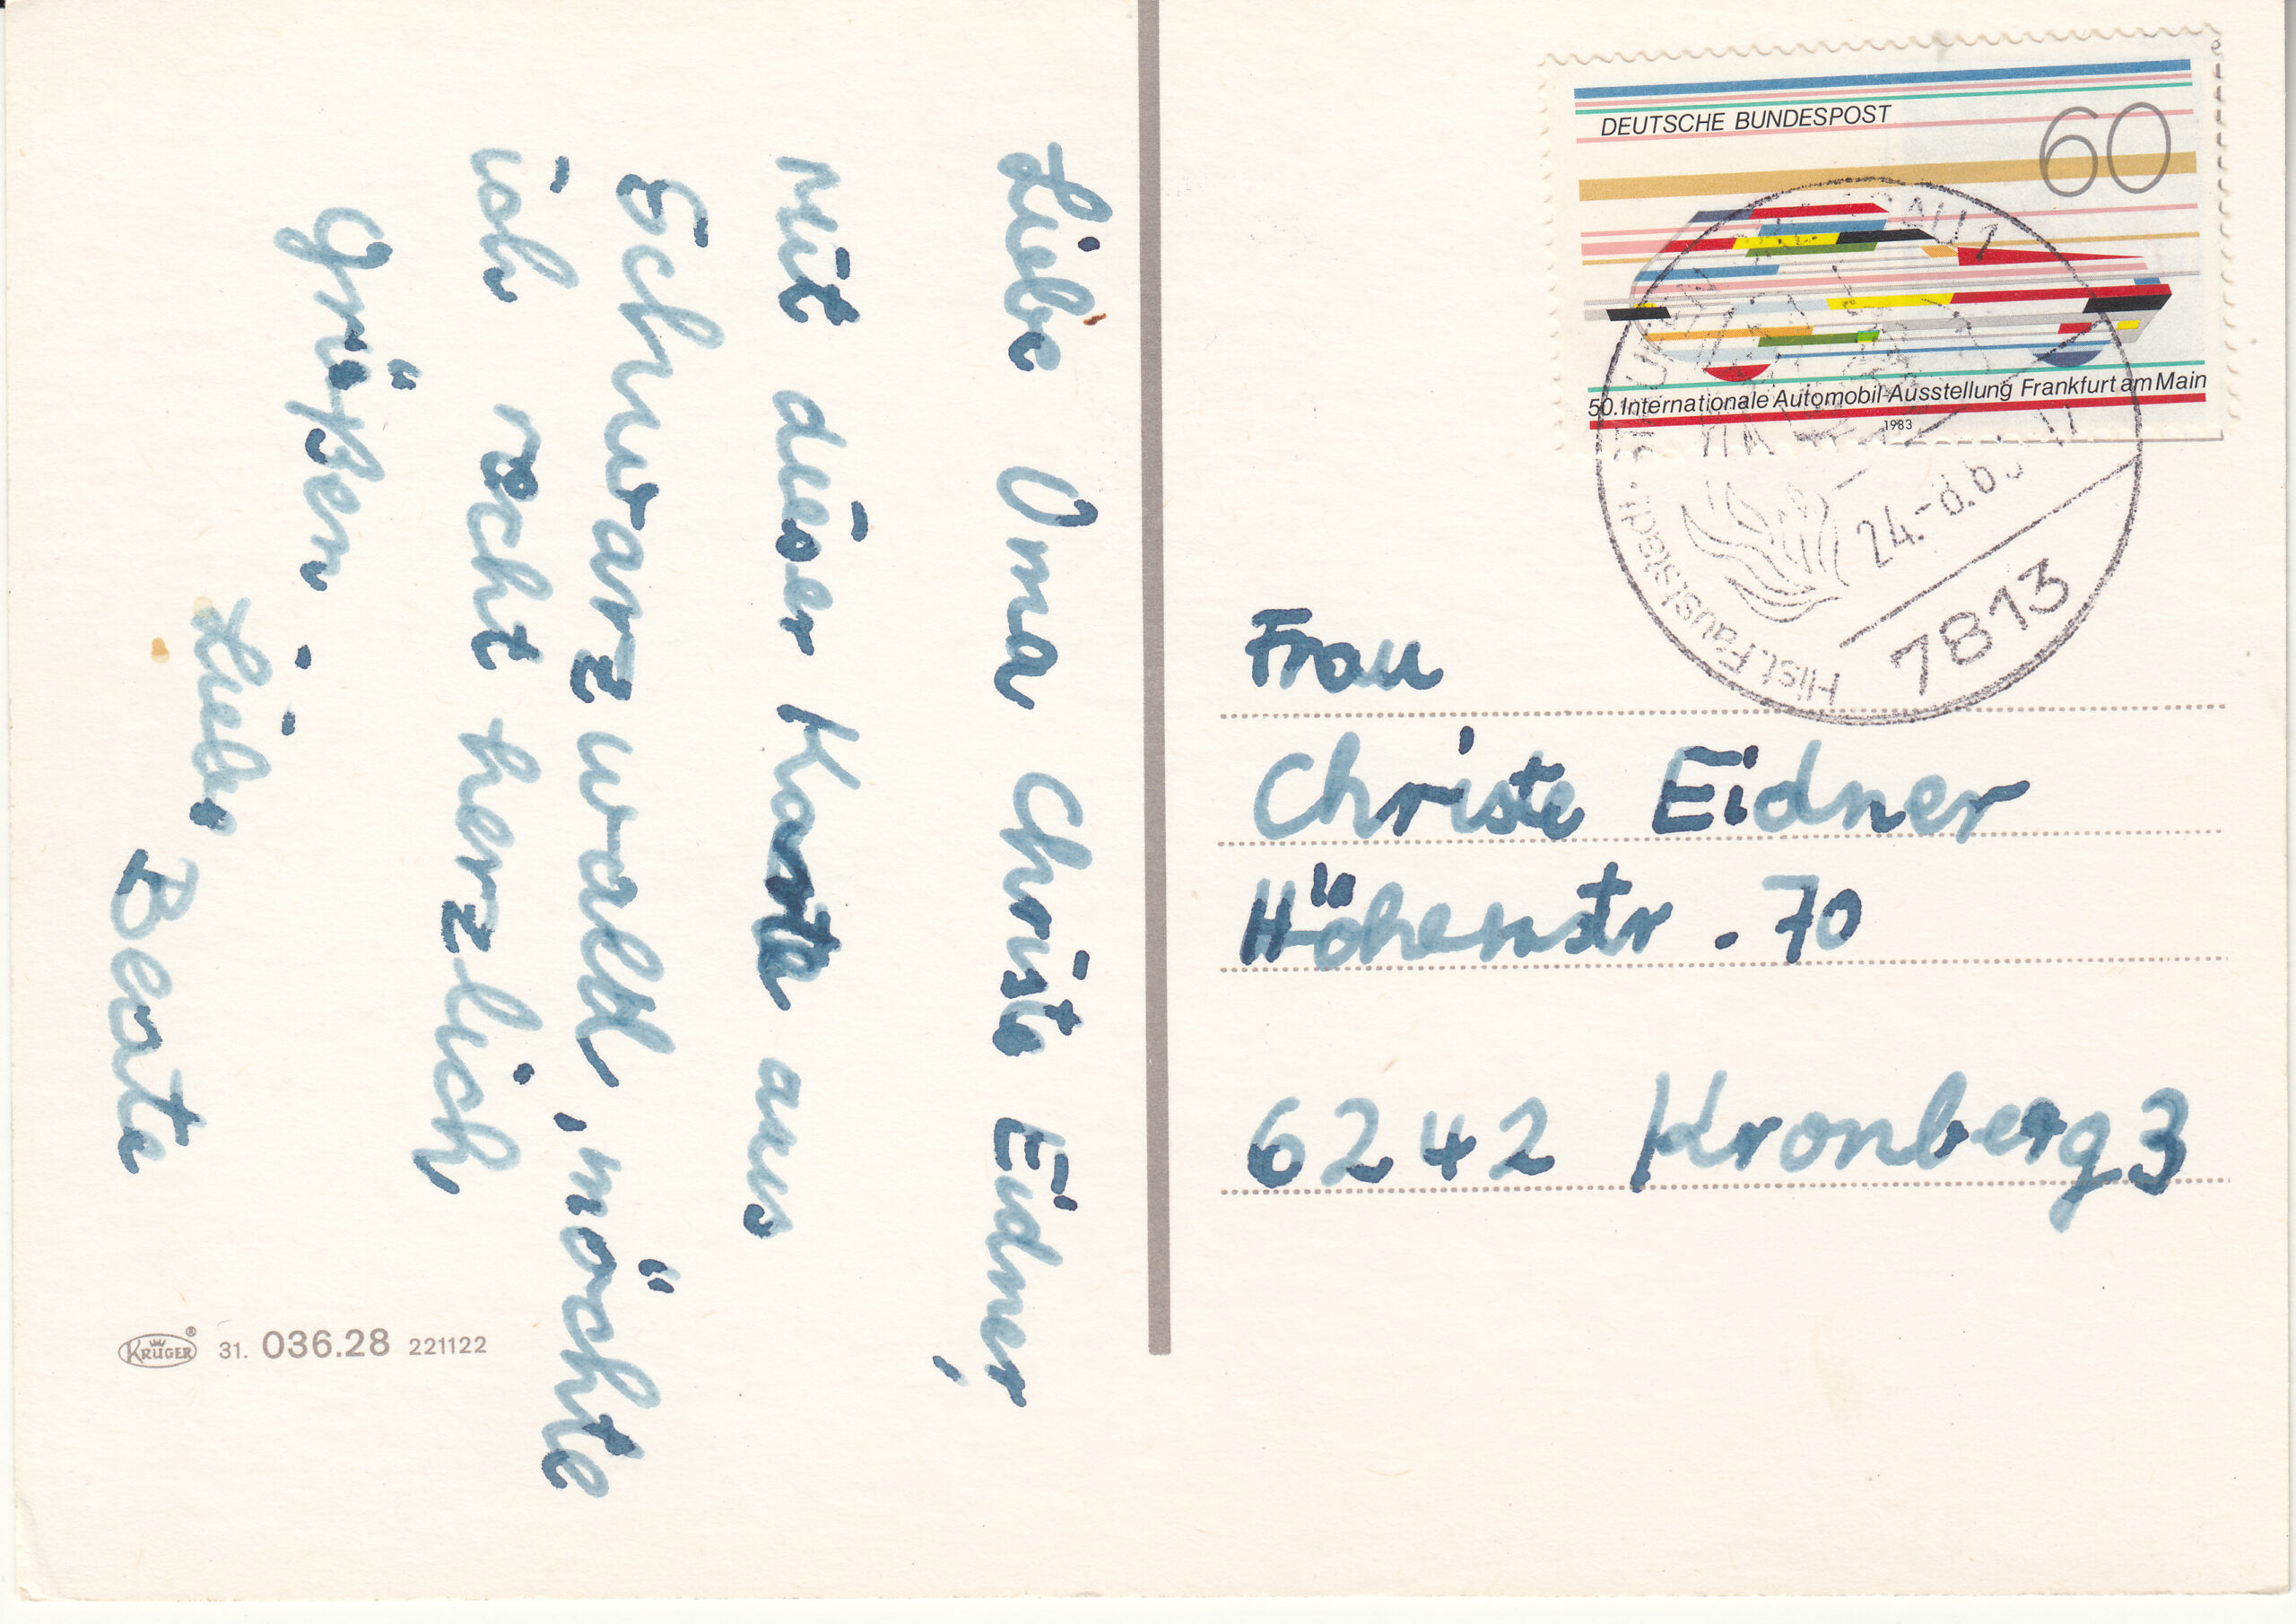 Liebe Oma Christe Eidner,
Mit dieser Karte aus
Schwarzwald, möchte
ich recht herzlich
grüßen.
Liebe
Beate
KRÜGER ® 31. 036.28 221122
DEUTSCHE BUNDESPOST
60
50. Internationale Automobil-Ausstellung Frankfurt am Main
1983
Hist. Fauststadt
24.-8.8
7813
Frau
Christe Eidner
Höhenstr. 70
6242 Kronberg 3